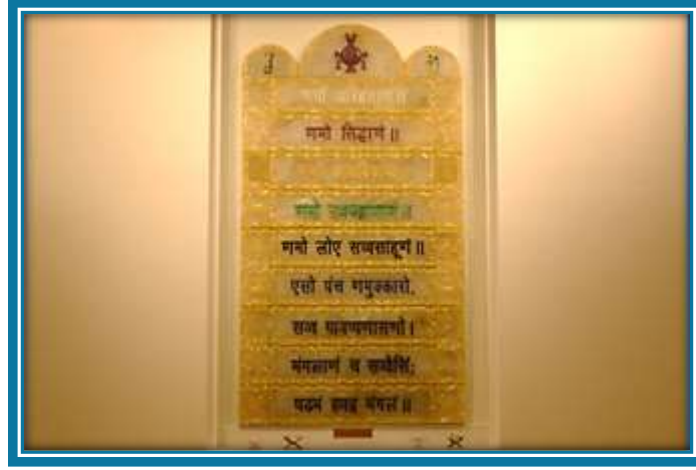 णमो
णमो सिद्धाणं॥
णमो उवज्झायाणं॥
णमो लोए सव्वसाहूणं॥
एसो पंच णमुक्कारो,
सव्व पावप्पणासणो।
मंगलाणं च सव्वेसिं,
पढमं हवइ मंगलं॥